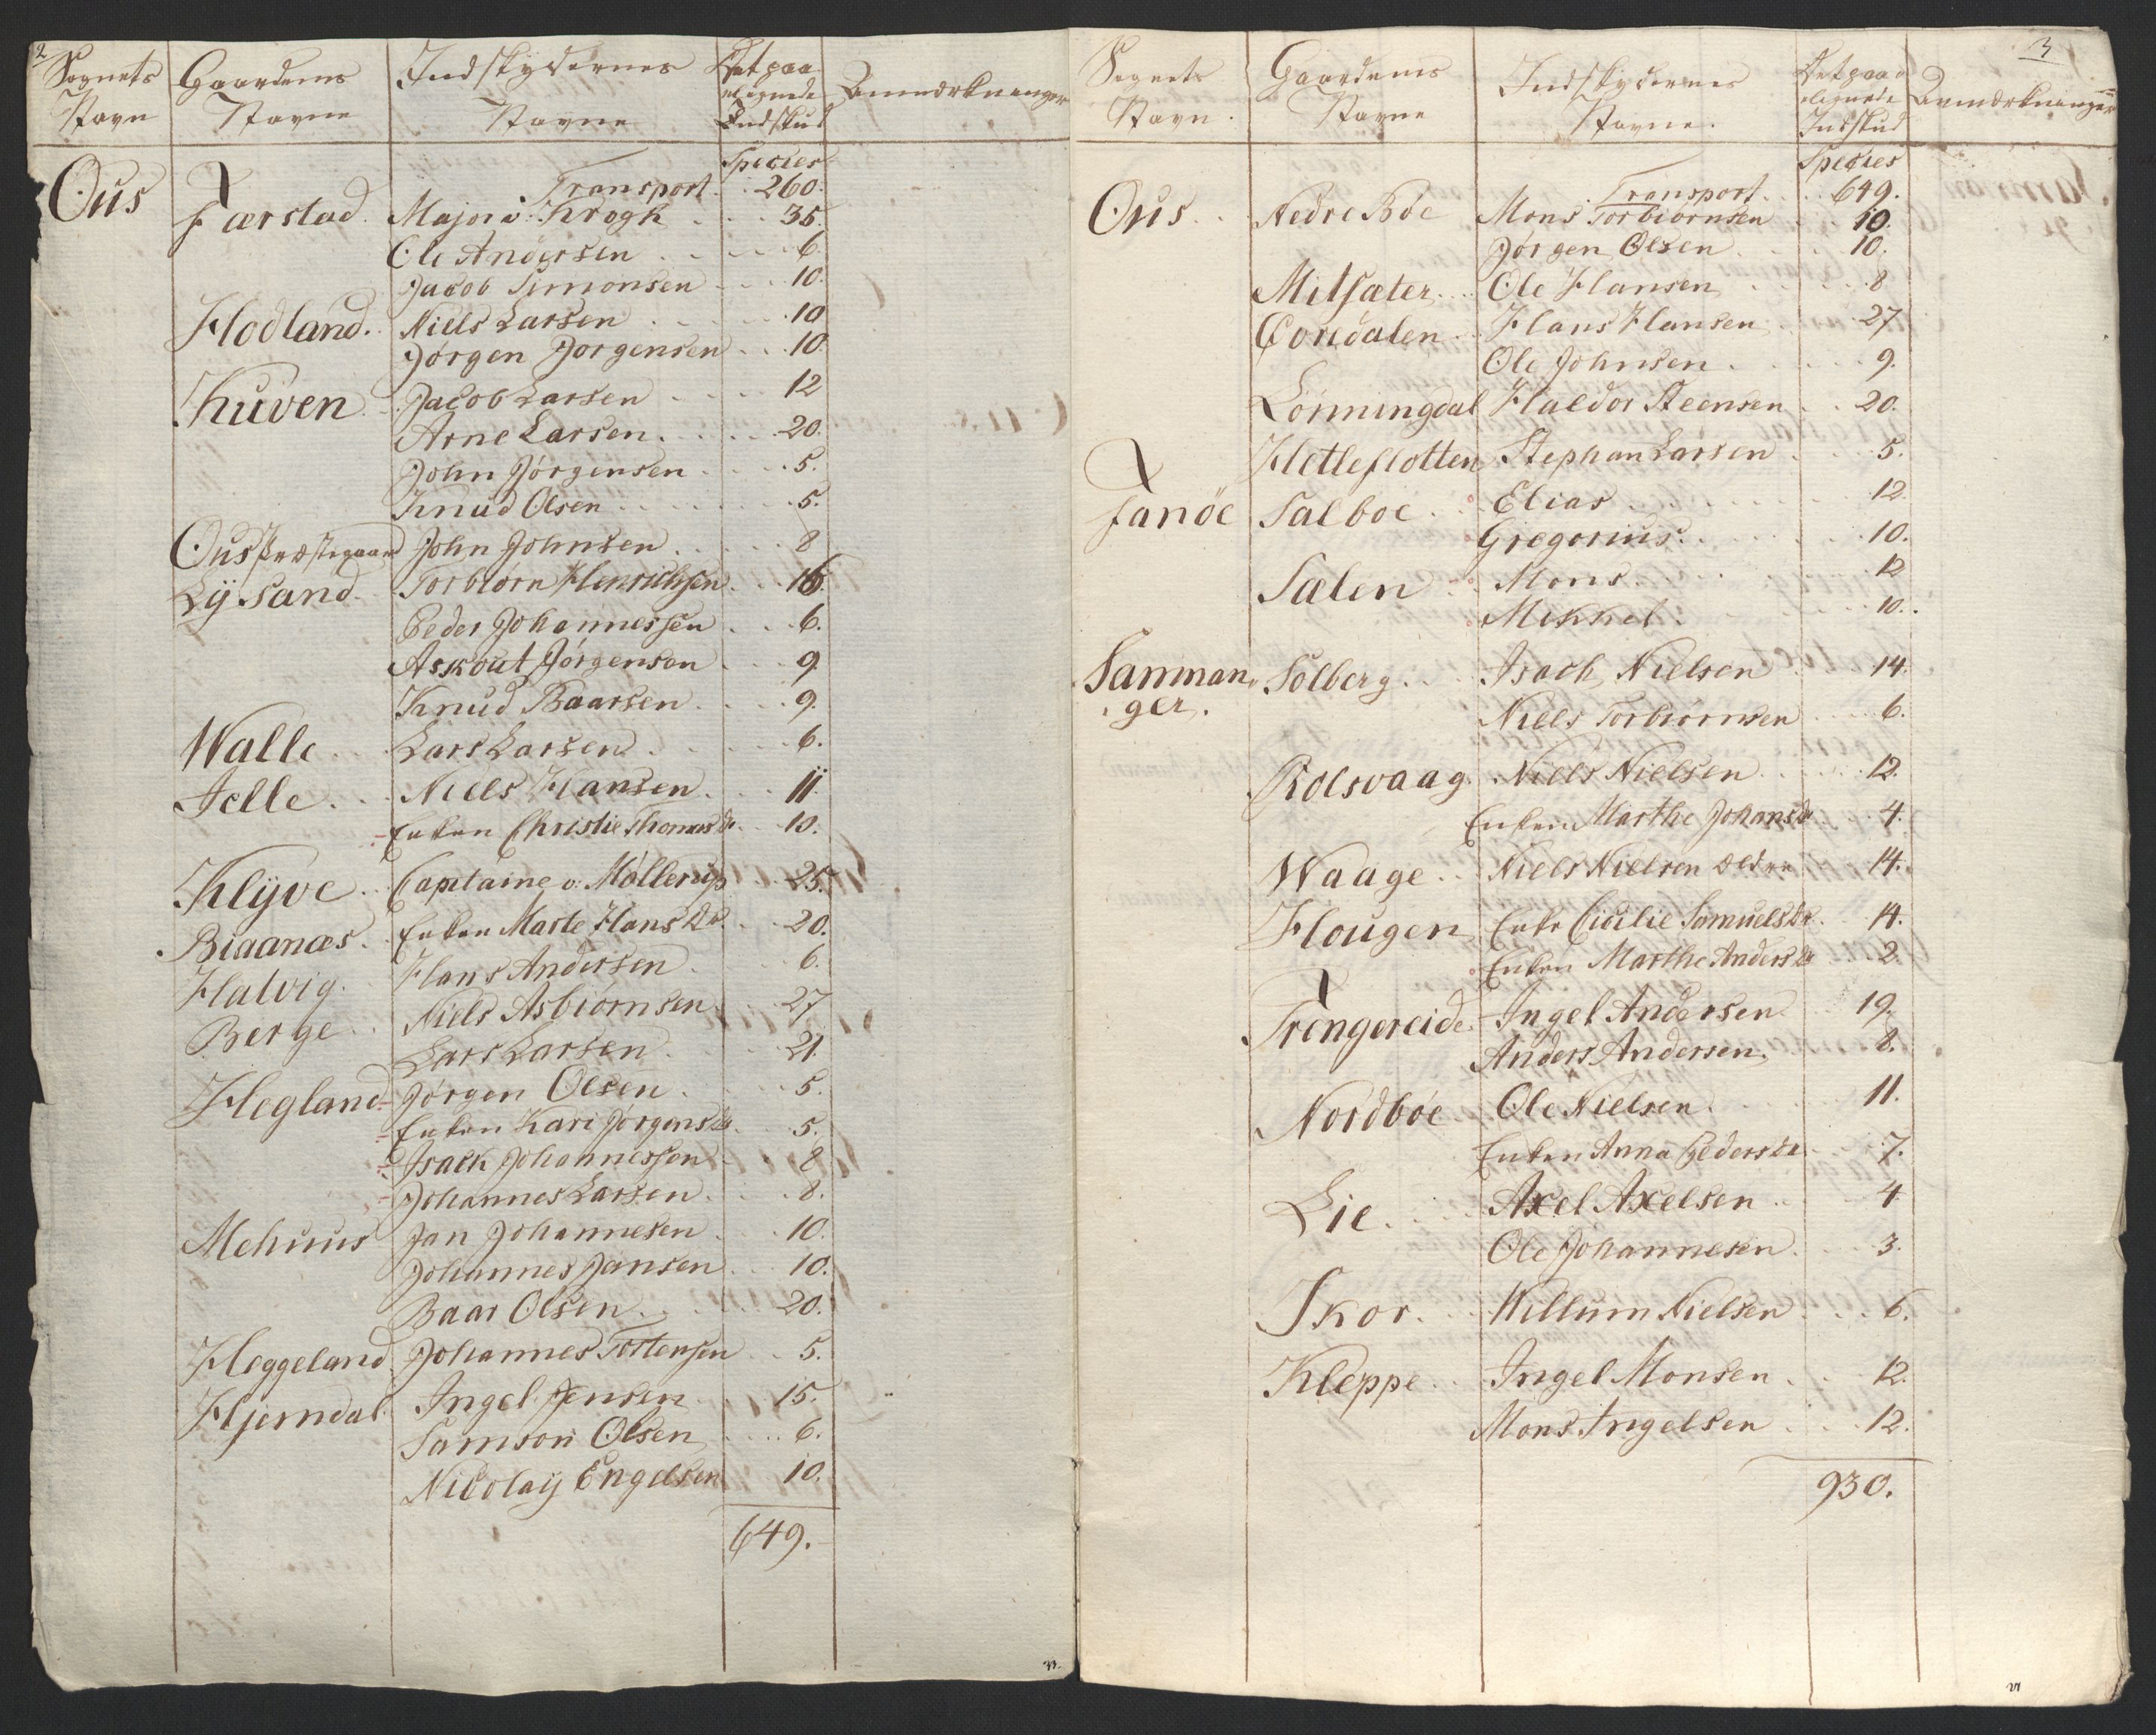 2
Sognets Navn | Gaardens Navne | Indskydernes Navne | Det paa lignede Indskud | Anmærkninger
Species
Transport. 260.
Ous | Færstad. | Major v: Krogh . . . 35.
Ole Andersen . . . 6.
Jacob Simonsen . . . 10.
Hodland. | Niels Larsen . . . 10
Jørgen Jørgensen . . . 10.
Kuven | Jacob Larsen . . . 12
Arne Larsen . . . 20.
John Jørgensen . . . 5.
Knud Olsen . . . 5.
Ous Præstegaard | John Johnsen . . . 8
Lÿsand | Torbiørn Henrichsen . . . 16.
Peder Johannessen . . . 6.
Askout Jørgensen . . . 9.
Knud Baarsen . . . 9.
Walle | Lars Larsen . . . 6.
Jelle | Niels Hansen . . . 11.
Enken Christie Thomasdr . . . 10.
Klÿve | Capitaine v. Møllerup . . . 25.
Biaanæs | Enken Marte Hansdr . . . 20.
Hatvig | Hans Andersen . . . 6.
Berge | Niels Asbiørnsen . . . 27
Lars Larsen . . . 21.
Hegland | Jørgen Olsen . . . 5.
Enken Kari Jørgensdr . . . 5.
Isack Johannessen . . . 8
Johannes Larsen . . . 8.
Mehuus | Jan Johannesen . . . 10.
Johannes Jansen . . . 10.
Baar Olsen . . . 20.
Heggeland | Johannes Tostensen . . . 5.
Hjerndal | Ingel Jensen . . . 15.
Samson Olsen . . . 6.
Nicolaÿ Engelsen . . . 10.
649.
3
Sognets Navn. | Gaardenes Navne | Indskydernes Navne. | Det paa lignede Indskud | Anmærkninger
Species
Transport . . . 649.
Ous | Nedre Bøe | Mons Torbiørnsen . . . 10.
Jørgen Olsen . . . 10.
Mitsæter | Ole Hansen . . . 8
Goredalen | Hans Hansen . . . 27
Ole Johnsen . . . 9.
Lønningdal | Haldor Steensen . . . 20.
Hetleflotten | Stephan Larsen . . . 5.
Fanøe | Salboe | Elias . . . 12.
Gregorius . . . 10.
Sælen | Mons . . . 12
Mikkel . . . 10.
Samman-ger. | Solberg | Isach Nielsen . . . 14.
Niels Torbiørnsen . . . 6.
Rolsvaag | Niels Nielsen . . . 12.
Enken Marthe Johansdr . . . 4.
Waage | Niels Nielsen ældre . . . 14.
Hougen | Enke Cicilie Samuelsdr . . . 14.
Enken Marthe Andersdr . . . 2.
Trengereide | Ingel Andersen . . . 19.
Anders Andersen . . . 8.
Nordbøe | Ole Nielsen . . . 11.
Enken Anna Pedersdr . . . 7.
Lie | Axel Axelsen . . . 4
Ole Johannesen . . . 3.
Skor | Willum Nielsen . . . 6.
Kleppe | Ingel Monsen . . . 12.
Mons Ingelsen . . . 12.
930.